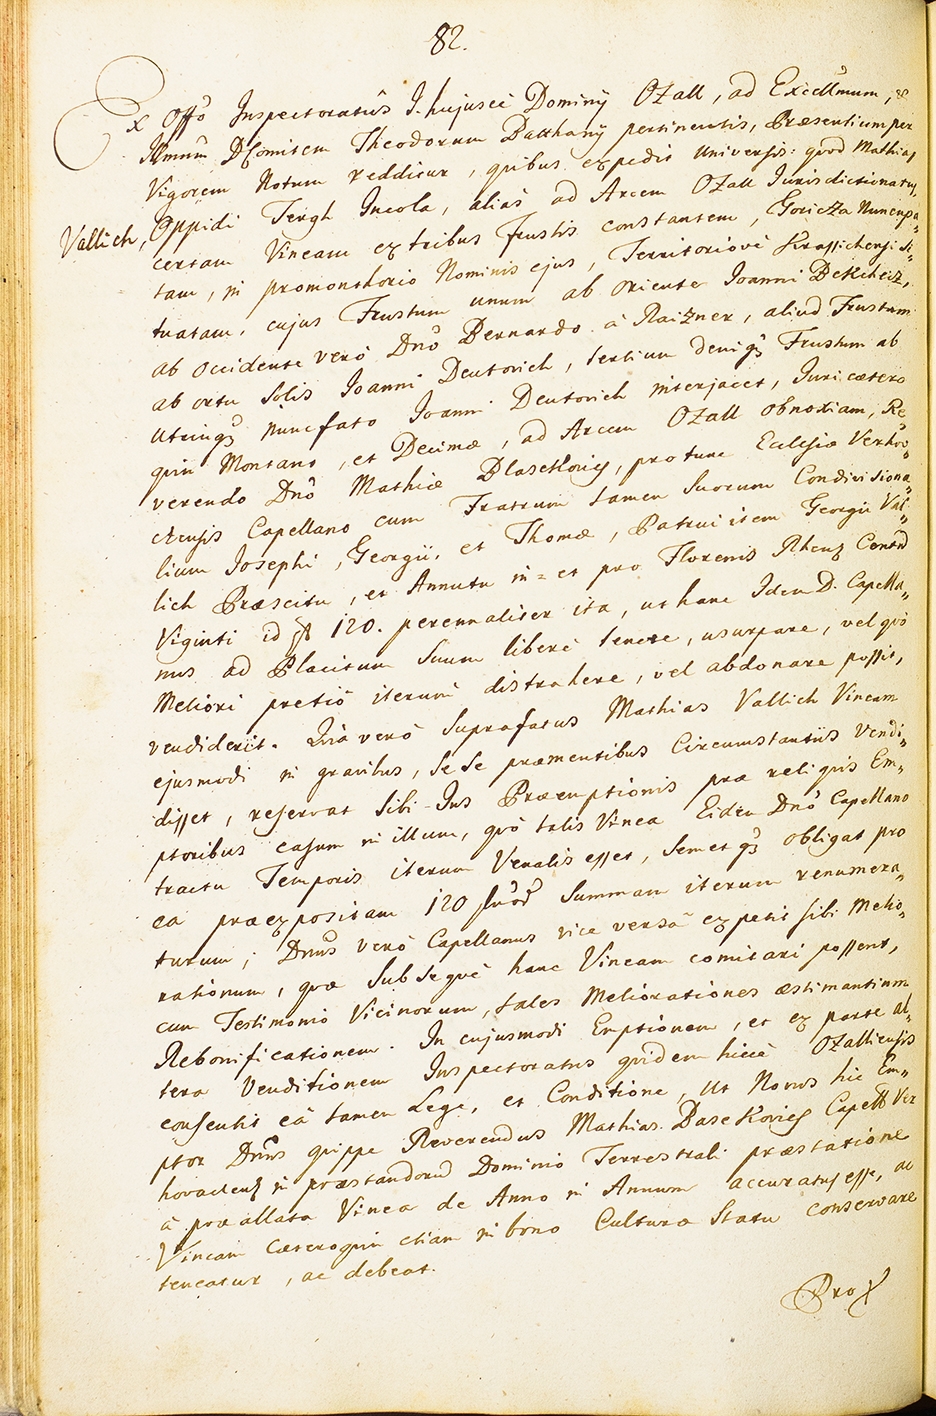 82.
Ex Offõ Inspectoratûs I. hujusce Dominij Ozall, ad Excellmum, &
Illmum D. Comitem Theodorum Batthanÿ pertinentis, Præsentium per
Vigorem Notum redditur, quibus expedit Universis: quod Mathias
Vallich, Oppidi Tergh Incola, aliàs ad Arcem Ozall Jurisdictionatus,
certam Vineam ex tribus frustis constantem, Goricza Nuncupa„
tam, in promonthorio Nominis ejus, Territoriovè Krassichensi si„
tuatam, cujus Frustum unum ab oriente Joanni Detsicheiz,
ab occidente verò Dnõ Bernardo à Raizner, aliud Frustum
ab ortu Solis Joanni Deutovich, tertium deniq3 Frustum ab
Utrinq3 nuncfato Joanni Deutovich interjacet, Juri cætero
quin Montano, et Decimæ, ad Arcem Ozall obnoxiam, Re„
verendo Dnõ Mathiæ Blasekovics, protunc Ecclesiæ Verho„
chensis Capellano cum Fratrum tamen Suorum Condivisiona„
lium Josephi, Georgij, et Thomæ, Patrui item Georgij Val„
lich Præscitu, et Annutu in= et pro Florenis Rhens Centũ
Viginti id est 120. perennaliter ita, ut hanc Idem D. Capella„
nus ad Placitum Suum liberè tenere, usurpare, vel quò
Meliori pretiô iterum distrahere, vel abdonare possit,
vendiderit. Quia verò Suprafatus Mathias Vallich Vineam
ejusmodi in gravibus, se se præmentibus Circumstantiis Vendi„
disset, reservat Sibi Jus Præemptionis præ reliquis Em„
ptoribus casum in illum, quò talis Vinea Eidem Dnõ Capellano
tractu Temporis iterum Venalis esset, Semetq3 obligat pro
ea præexpositam 120 fnõr Summam iterum renumera„
turum; Dnus verò Capellanus vice versâ expetit sibi Melio„
rationum, quæ Subsequè hanc Vineam comitari possent,
cum Testimonio Vicinorum, tales Meliorationes æstimantium
Rebonificationem. In cujusmodi Emptionem, et ex parte al„
tera Venditionem Inspectoratus quidem hicce Ozalliensis
consentit eâ tamen Lege, et Conditione, Ut Novus hic Em„
ptor Dnus quippe Reverendus Mathias Basekovics Capells Ver
hovachens in præstandorũ Dominio Terrestrali præstatione
à præallata Vinea de Anno in Annum accuratus esse, ac
Vineam Cæteroquin etiam in bono Culturæ Statu conservare
teneatur, ac debeat.